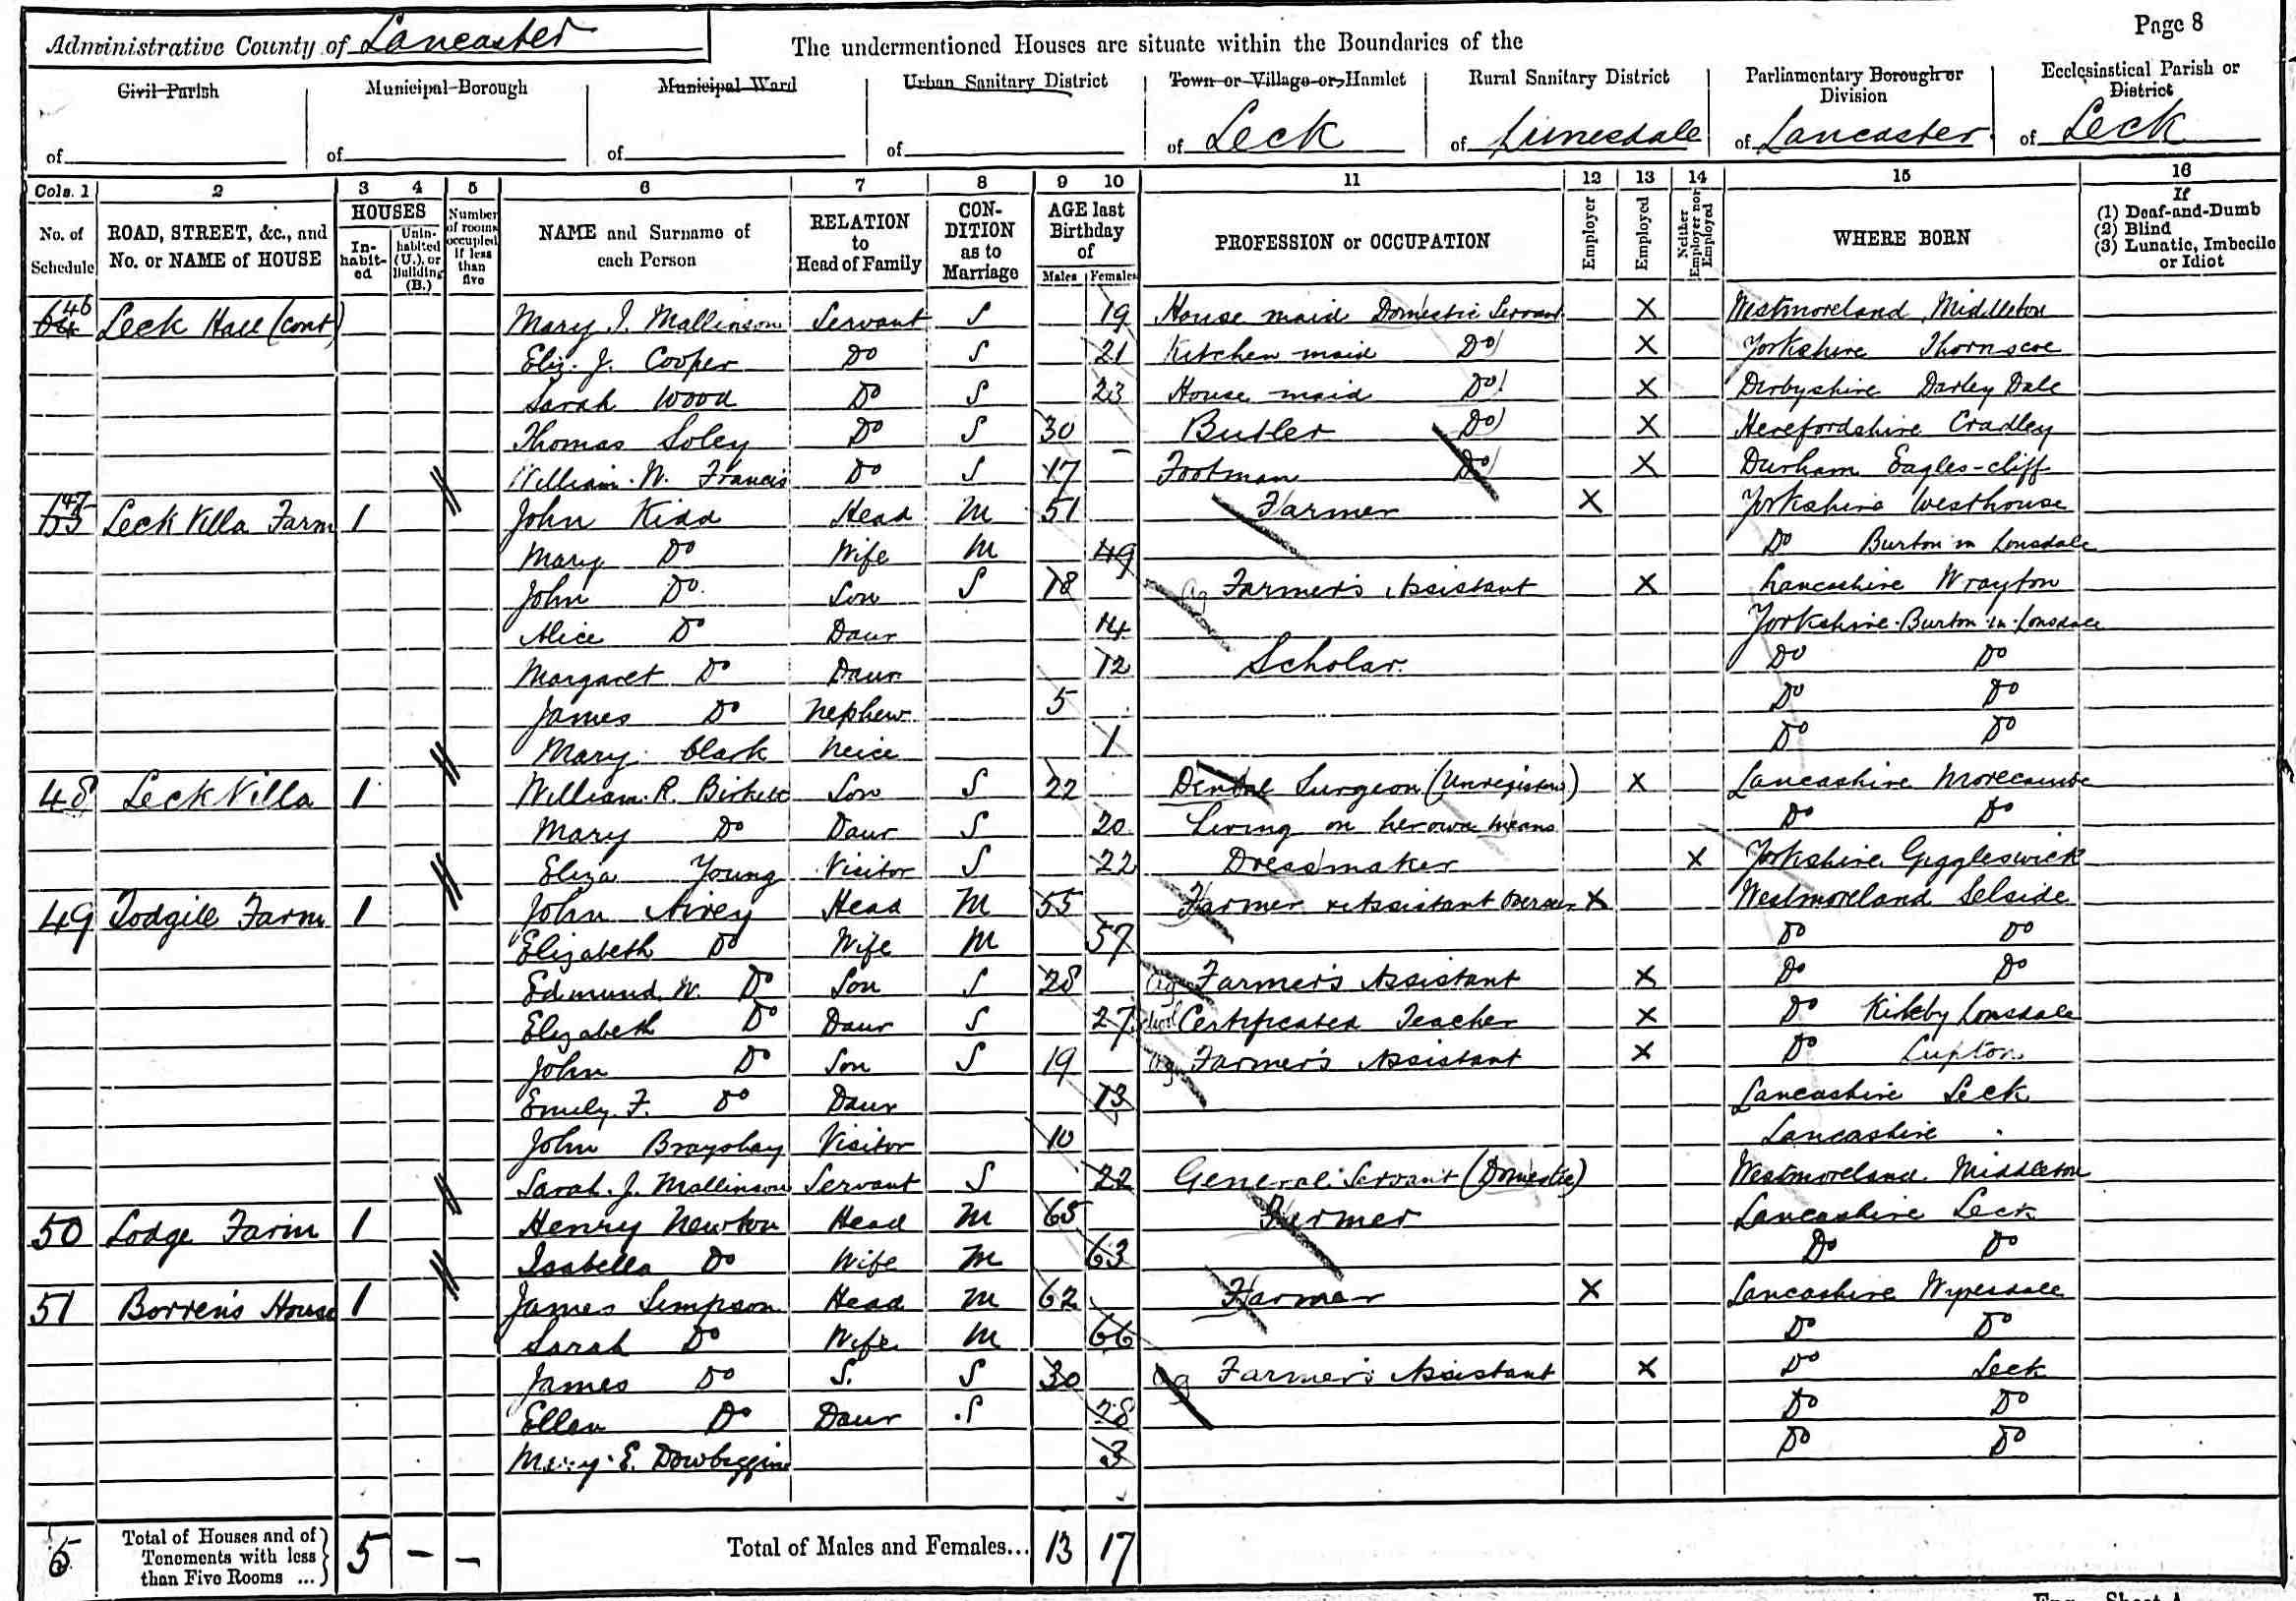 Page 8
Administrative County of Lancaster
The undermentioned Houses are situate within the Boundaries of the
Civil Parish of
Municipal Borough of
Municipal Ward of
Urban Sanitary District of
Town or Village or Hamlet of Leck
Rural Sanitary District of Lunesdale
Parliamentary Borough or Division of Lancaster
Ecclesiastical Parish or District of Leck
Cols. 1 2 3 4 5 6 7 8 9 10 11 12 13 14 15 16
No. of Schedule
ROAD, STREET, &c., and No. or NAME of HOUSE
HOUSES
In-habit-ed
Unin-habited (U.), or Building (B.)
Number of rooms occupied if less than five
NAME and Surname of each Person
RELATION to Head of Family
CON-DITION as to Marriage
AGE last Birthday of
Males Females
PROFESSION or OCCUPATION
Employer
Employed
Neither Employer nor Employed
WHERE BORN
If
(1) Deaf-and-Dumb
(2) Blind
(3) Lunatic, Imbecile or Idiot
46 Leck Hall (cont) Mary J. Mallinson Servant S 19 House maid Domestic Servant X Westmoreland Middleton
Eliz. J. Cooper Do S 21 Kitchen maid Do X Yorkshire Thornscoe
Sarah Wood Do S 23 House maid Do X Derbyshire Darley Dale
Thomas Soley Do S 30 Butler Do X Herefordshire Cradley
William W. Francis Do S 17 Footman Do X Durham Eagles-cliff
47 Leck Villa Farm 1 John Kidd Head M 51 Farmer X Yorkshire Westhouse
Mary Do Wife M 49 Do Burton in Lonsdale
John Do Son S 18 Ag Farmer's Assistant X Lancashire Wrayton
Alice Do Daur 14 Yorkshire Burton in Lonsdale
Margaret Do Daur 12 Scholar Do Do
James Do Nephew 5 Do Do
Mary Clark Neice 1 Do Do
48 Leck Villa 1 William R. Birkett Son S 22 Dental Surgeon (Unregistered) X Lancashire Morecambe
Mary Do Daur S 20 Living on her own means Do Do
Eliza Young Visitor S 22 Dressmaker X Yorkshire Giggleswick
49 Todgill Farm 1 John Airey Head M 55 Farmer & Assistant Overseer X Westmoreland Selside
Elizabeth Do Wife M 57 Do Do
Edmund W. Do Son S 28 Ag Farmer's Assistant X Do Do
Elizabeth Do Daur S 27 School Certificated Teacher X Do Kirkby Lonsdale
John Do Son S 19 Ag Farmer's Assistant X Do Lupton
Emily F. Do Daur 13 Lancashire Leck
John Brayshay Visitor 10 Lancashire
Sarah J. Mallinson Servant S 22 General Servant (Domestic) Westmoreland Middleton
50 Lodge Farm 1 Henry Newton Head M 65 Farmer Lancashire Leck
Isabella Do Wife M 63 Do Do
51 Borren's House 1 James Simpson Head M 62 Farmer X Lancashire Wyresdale
Sarah Do Wife M 66 Do Do
James Do S. S 30 Ag Farmer's Assistant X Do Leck
Ellen Do Daur S 28 Do Do
Mary E. Dowbiggin 3 Do Do
5 Total of Houses and of Tenements with less than Five Rooms ... 5 – – Total of Males and Females... 13 17